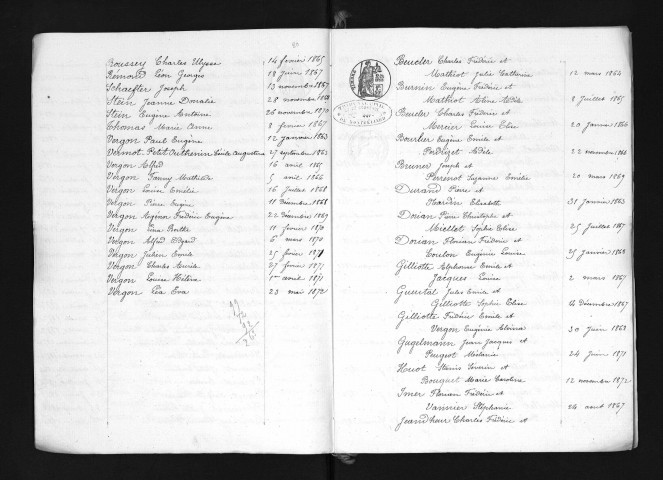 Boussey Charles Ulysse 14 février 1865
Rémond Léon Georges 18 juin 1867
Schaeffer Joseph 13 novembre 1867
Stein Jeanne 28 novembre 1868
Stein Eugène Antoine 26 novembre 1870
Thomas Marie Anne 2 février 1867
Vergon Paul Eugène 12 janvier 1863
Vermot-Petit-Outhenin Emile Augustine 27 septembre 1863
Vergon Alfred 16 avril 1865
Vergon Fanny Mathilde 5 avril 1866
Vergon Louise Emélie 16 juillet 1868
Vergon Pierre Eugène 11 décembre 1868
Vergon Frédéric Eugène 22 décembre 1869
Vergon Berthe 11 février 1870
Vergon Alfred Edgard 6 mars 1870
Vergon Julien Emile 25 février 1871
Vergon Charles 27 février 1871
Vergon Louise Héléna 1er avril 1871
Vergon Léa Eva 23 mai 1872
Beucler Charles Frédéric et
Mathiot Julie Catherine 12 mars 1864
Eugène Frédéric et
Mathiot Adèle 8 juillet 1865
Beucler Charles Frédéric et
Mercier Louise Elise 20 janvier 1866
Bourlier Eugène Emile et
Perdrizet Adèle 22 novembre 1866
Bruner Joseph et
Perrenot Suzanne Emélie 20 mars 1869
Durand Pierre et
Elisabeth 31 janvier 1863
Dorian Pierre Christophe et
Miellot Sophie Elise 25 juillet 1867
Dorian Florian Frédéric et
Toulon Eugénie Louise 25 janvier 1868
Gilliotte Alphonse Emile et
Jacques Louise 2 mars 1867
Gueutal Jules Emile et
Gilliotte Sophie Elise 14 décembre 1867
Gilliotte Frédéric Emile et
Vergon Eugénie 30 juin 1868
Gugelmann Jean Jacques et
Peugeot Mélanie 24 juin 1871
Huot et
Bouquet Marie Caroline 12 novembre 1872
Imer Florian Frédéric et
Vannier Stéphanie 24 aout 1867
Jeand'heur Charles Frédéric et